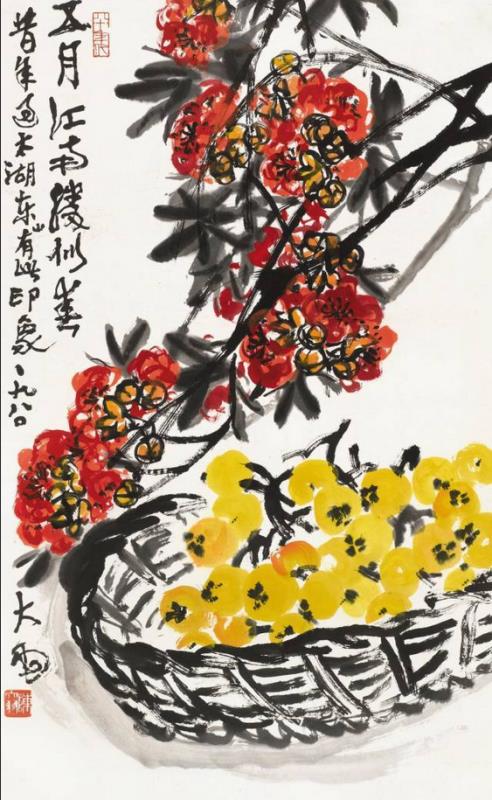 五月江南胜似春
昔年过太湖东山有此印象一九八〇
大羽